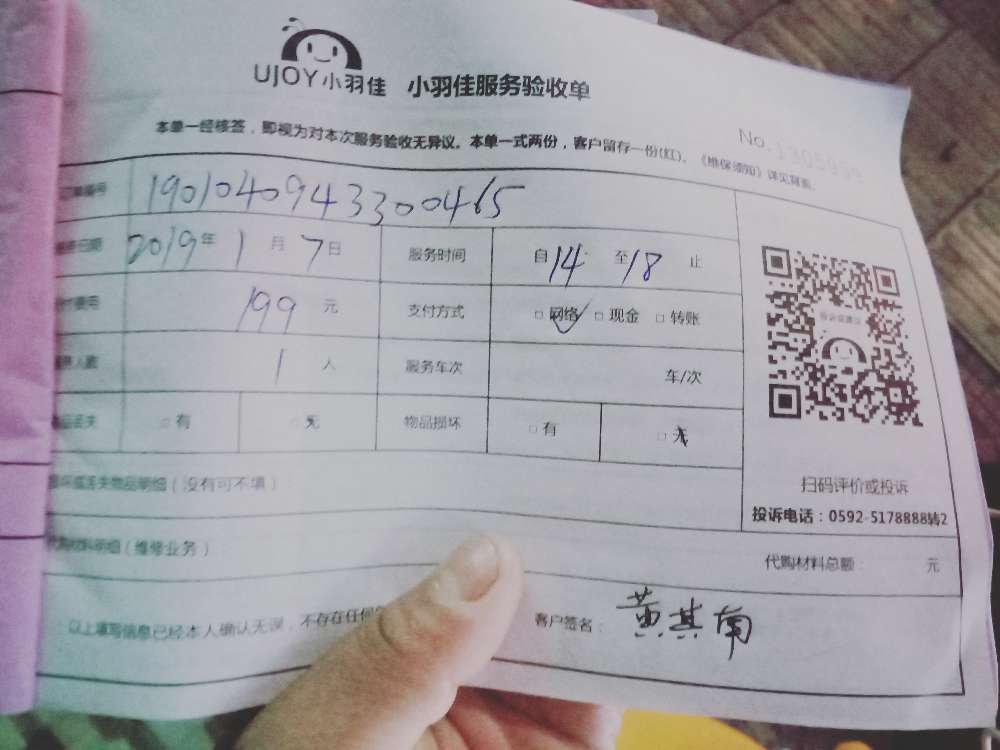 UJOY小羽佳 小羽佳服务验收单
本单一经核签，即视为对本次服务验收无异议。本单一式两份，客户留存一份(红)。《维保须知》详见背面。
No.
编号 1901040943300465
日期 2019年1月7日 服务时间 自14至18止
费用 199元 支付方式 □网络 □现金 □转账
人数 1人 服务车次 车/次
丢失 □有 □无 物品损坏 □有 □无
丢失物品明细（没有可不填）
材料明细（维修业务） 代购材料总额： 元
扫码评价或投诉
投诉电话：0592-5178888转2
以上填写信息已经本人确认无误，不存在任何 客户签名：黄其南